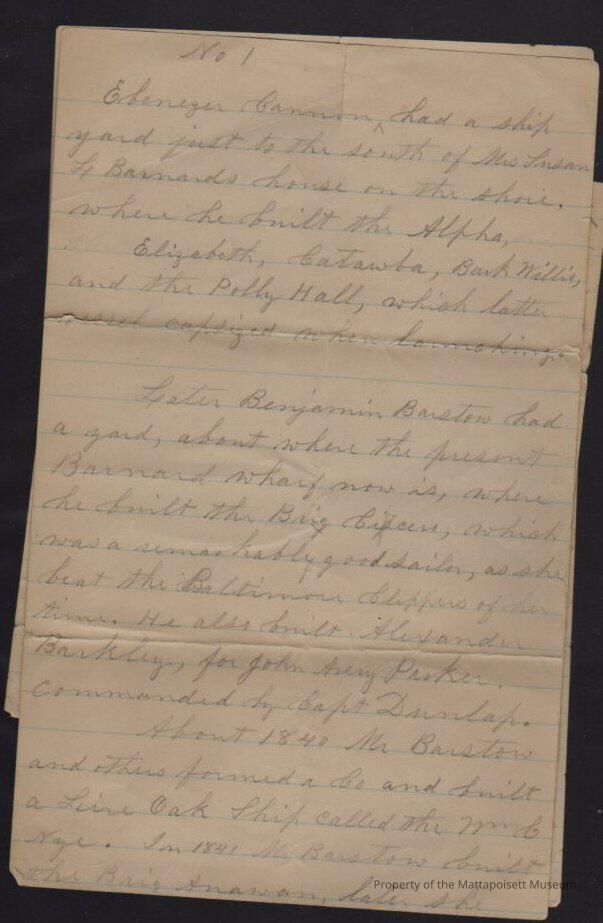 No 1
Ebenezer Cannon, had a ship
yard just to the south of Mrs Susan
F Barnards house on the shore,
where he built the Alpha,
Elizabeth, Catawba, Bark Willis,
and the Polly Hall, which latter
vessel capsized when launching.
Later Benjamin Barstow had
a yard, about where the present
Barnard wharf now is, where
he built the Brig which
was a remarkably good sailor, as she
beat the Baltimore Clippers of her
time. He also built Alexander
Barkley, for John Avery Parker.
Commanded by Capt Dunlap.
About 1840 Mr Barstow
and others formed a Co and built
a Live Oak Ship called the Wm C
Nye. In 1841 Mr Barstow built
the Brig Anawan, later she
Property of the Mattapoisett Museum